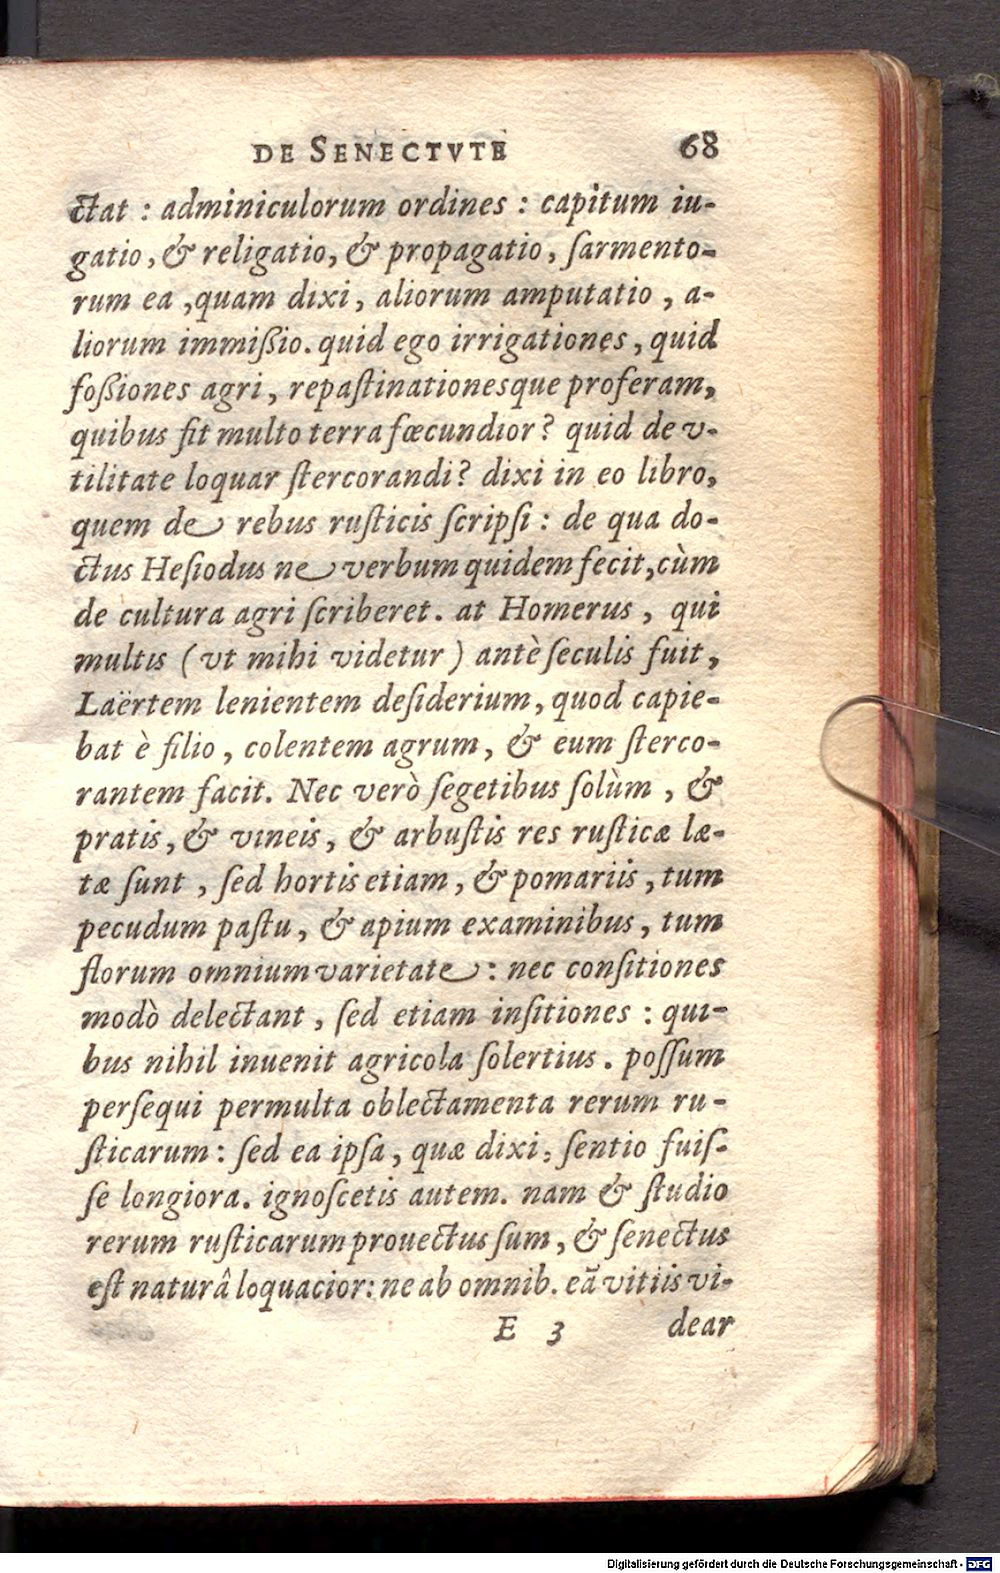 DE SENECTVTE 68
ctat : adminiculorum ordines : capitum iu-
gatio, & religatio, & propagatio, ſarmento-
rum ea ,quam dixi, aliorum amputatio , a-
liorum immißio. quid ego irrigationes, quid
foßiones agri, repaſtinationesque proferam,
quibus fit multo terra fœcundior? quid de v-
tilitate loquar ſtercorandi? dixi in eo libro,
quem de rebus ruſticis ſcripſi : de qua do-
ctus Heſiodus ne verbum quidem fecit, cùm
de cultura agri ſcriberet. at Homerus, qui
multis (vt mihi videtur) antè ſeculis fuit,
Laërtem lenientem deſiderium, quod capie-
bat è filio, colentem agrum, & eum ſterco-
rantem facit. Nec verò ſegetibus ſolùm, &
pratis, & vineis, & arbuſtis res ruſticæ læ-
tæ ſunt, ſed hortis etiam, & pomariis, tum
pecudum paſtu, & apium examinibus, tum
florum omnium varietate : nec conſitiones
modò delectant, ſed etiam inſitiones : qui-
bus nihil inuenit agricola ſolertius. poſſum
perſequi permulta oblectamenta rerum ru-
ſticarum : ſed ea ipſa, quæ dixi, ſentio fuiſ-
ſe longiora. ignoſcetis autem. nam & ſtudio
rerum ruſticarum prouectus ſum, & ſenectus
eſt naturâ loquacior: ne ab omnib. eã vitiis vi-
E 3 dear
Digitalisierung gefördert durch die Deutsche Forschungsgemeinschaft - DFG